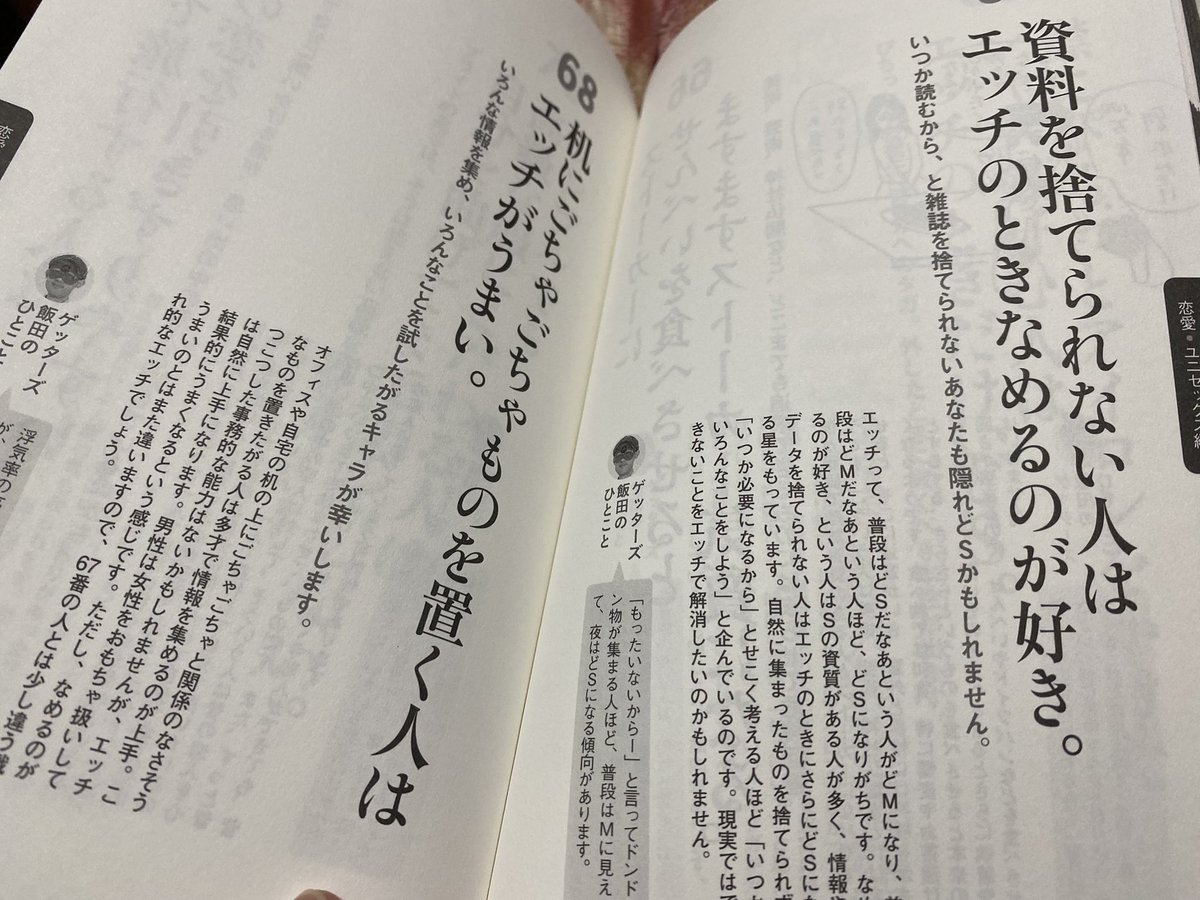 資料を捨てられない人は
エッチのときなめるのが好き。
いつか読むから、と雑誌を捨てられないあなたも隠れどSかもしれません。
エッチって、普段はどSだなあという人がどMになり、
段はどMだなあという人ほど、どSになりがちです。なめ
るのが好き、という人はSの資質がある人が多く、情報や
データを捨てられない人はエッチのときにさらにどSにな
る星をもっています。自然に集まったものを捨てられず
「いつか必要になるから」とせこく考える人ほど「いつか
いろんなことをしよう」と企んでいるのです。現実ではで
きないことをエッチで解消したいのかもしれません。
ゲッターズ
飯田の
ひとこと
「もったいないからー」と言ってドンド
ン物が集まる人ほど、普段はMに見え
て、夜はどSになる傾向があります。
恋愛・ユニセックス編
68
机にごちゃごちゃものを置く人は
エッチがうまい。
いろんな情報を集め、いろんなことを試したがるキャラが幸いします。
オフィスや自宅の机の上にごちゃごちゃと関係のなさそう
なものを置きたがる人は多才で情報を集めるのが上手。こ
つこつした事務的な能力はないかもしれませんが、エッチ
は自然に上手になります。男性は女性をおもちゃ扱いして
結果的にうまくなるという感じです。ただし、なめるのが
うまいのとはまた違いますので、67番の人とは少し違う戯
れ的なエッチでしょう。
ゲッターズ
飯田の
ひとこと
浮気率の
が、
恋愛